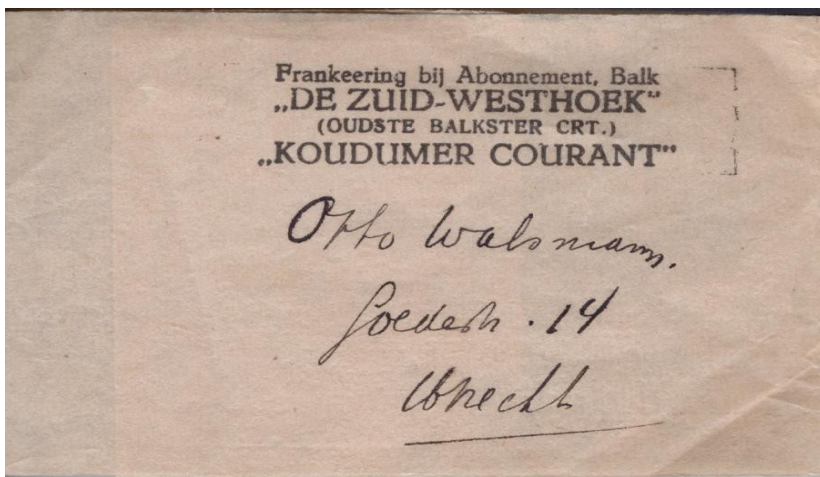 Frankeering bij Abonnement, Balk
„DE ZUID-WESTHOEK“
(OUDSTE BALKSTER CRT.)
„KOUDUMER COURANT”
Otto Walsmann.
Goedestr. 14
Utrecht